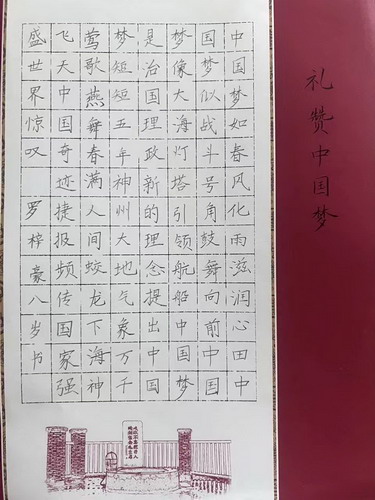 礼赞中国梦
中国梦如春风化雨滋润心田中
国梦似战斗号角鼓舞向前中国
梦像大海灯塔引领航船中国梦
是治国理政新的理念提出中国
梦短短五年神州大地气象万千
莺歌燕舞春满人间蛟龙下海神
飞天中国奇迹捷报频传国家强
盛世界惊叹 罗梓豪八岁书